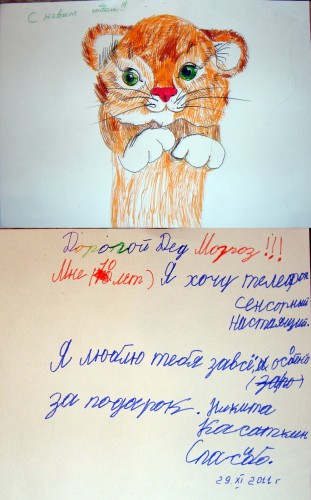 С новым годом!!
Дорогой Дед Мороз!!!
Мне (10 лет) Я хочу телефон
сенсорный
Настаящий.
Я люблю тебя за всё, и
за подарок. Никита
Касаткин
Спасибо.
29. XI 2011 г